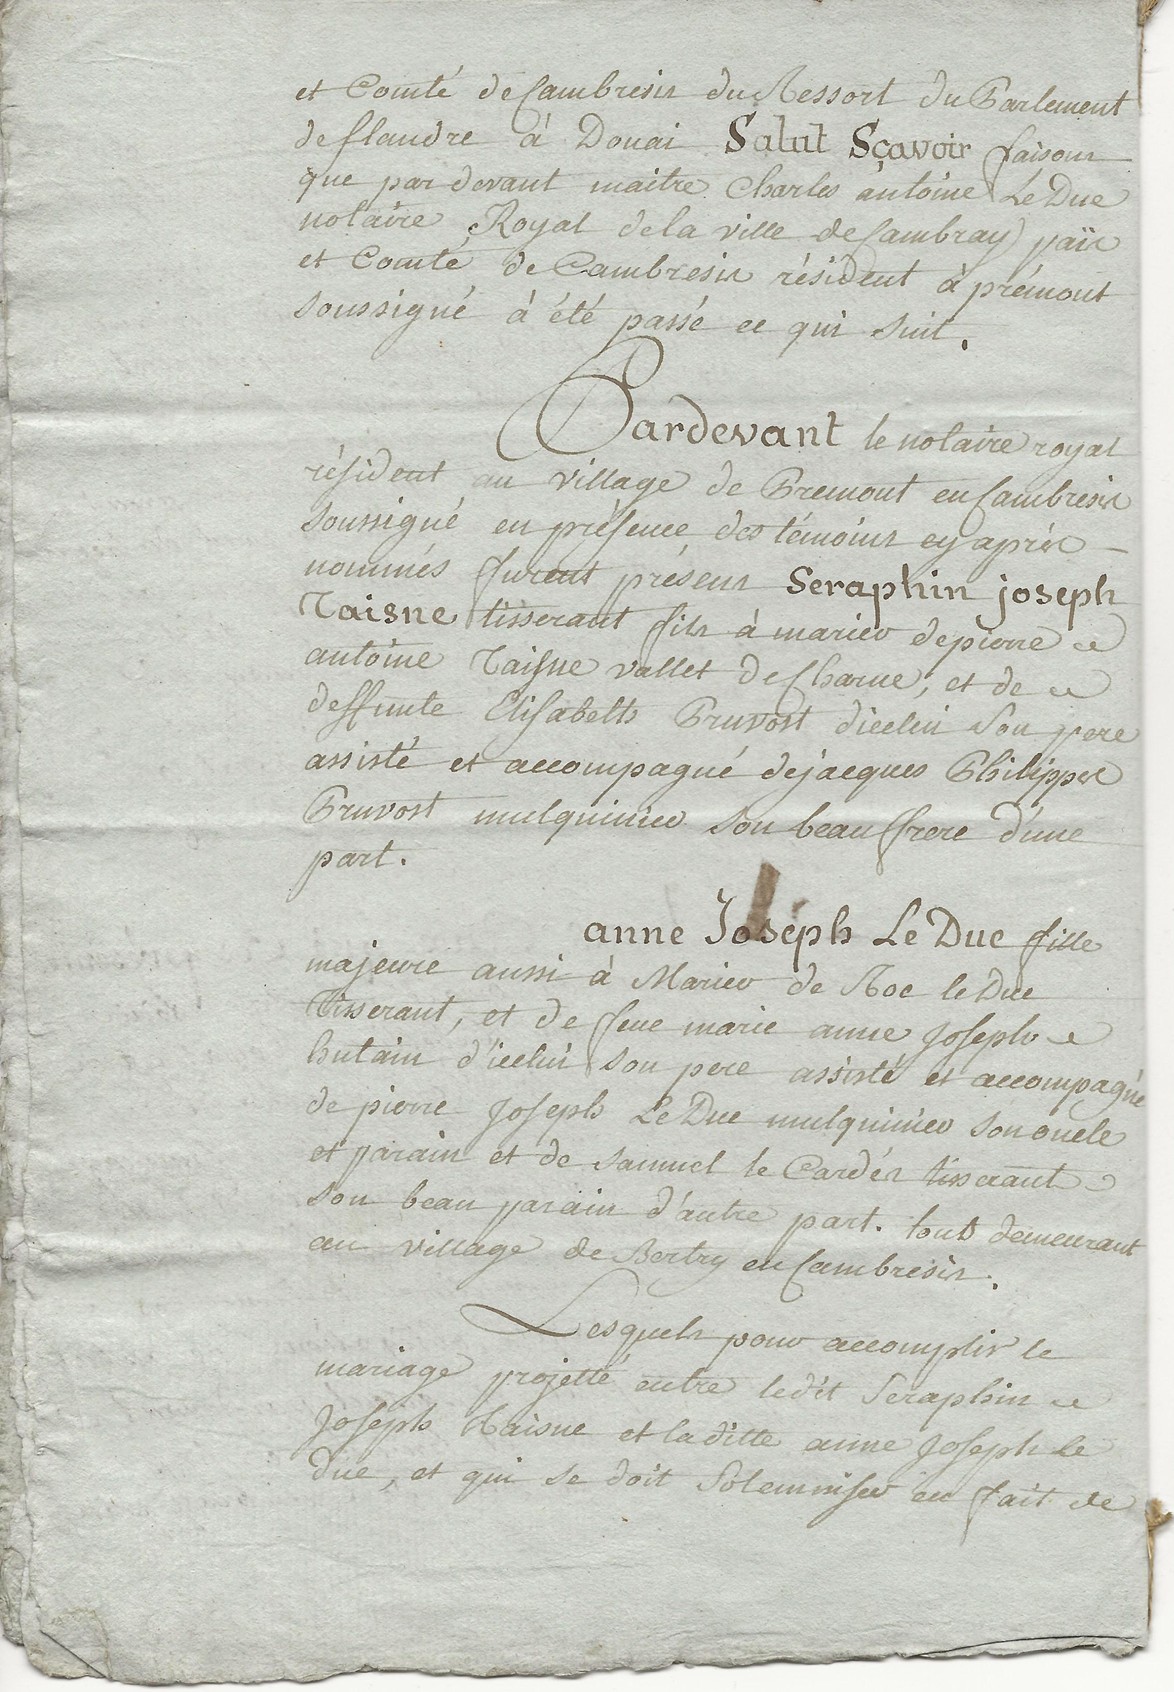 et Comté de Cambresis du Ressort du Parlement
de flandre à Douai Salut Sçavoir faisons
que par devant maitre Charles antoine Le Duc
notaire Royal de la ville de Cambray païs
et Comté de Cambresis résident à prémont
soussigné à été passé ce qui suit.
Pardevant le notaire royal
résident au village de Premont en Cambresis
soussigné en présence des témoins cy après
nommés furent présens Seraphin joseph
Taisne tisserant fils à marier de pierre
antoine Taisne vallet de Charue, et de
deffunte Elisabeth Pruvost d'icelui son pere
assisté et accompagné de jacques Philippes
Pruvost mulquinier son beau frere d'une
part.
anne Joseph Le Duc fille
majeure aussi à Marier de Roc le Duc
Tisserant, et de feue marie anne Joseph
hutain d'icelui son pere assisté et accompagné
de pierre Joseph Le Duc mulquinier son oncle
et parain et de samuel le Cardés tisserant
son beau parain d'autre part. touts demeurant
au village de Bertry en Cambresis.
Lesquels pour accomplir le
mariage projetté entre ledit Seraphin
Joseph Taisne et la ditte anne Joseph le
Duc, et qui se doit Solemniser en fait de